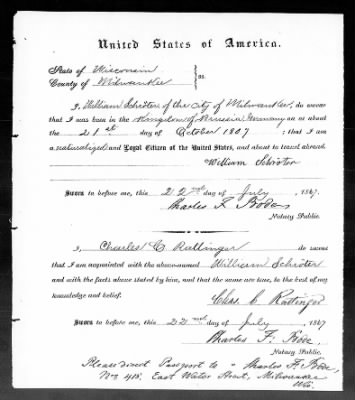 United States of America.
State of Wisconsin
County of Milwaukee } ss:
I, William Schröter of the City of Milwaukee, do swear
that I was born in the Kingdom of Prussia, Germany on or about
the 21st day of October 1807; that I am
a naturalized and Loyal Citizen of the United States, and about to travel abroad.
William Schröter
Sworn to before me, this 22nd day of July, 1867.
Charles F. Bode
Notary Public.
I, Charles C. Rattinger do swear
that I am acquainted with the above-named William Schröter
and with the facts above stated by him, and that the same are true, to the best of my
knowledge and belief.
Chas C. Rattinger
Sworn to before me, this 22nd day of July, 1867
Charles F. Bode,
Notary Public.
Please direct Passport to Charles F. Bode,
No 415, East Water Street, Milwaukee
Wis.